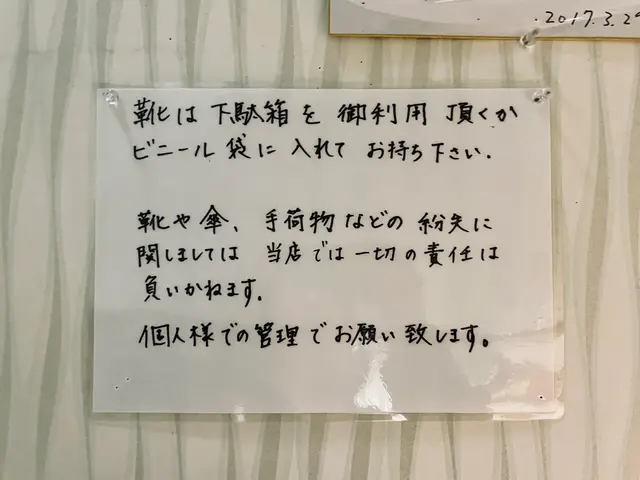 2017.3.29
靴は下駄箱を御利用頂くか
ビニール袋に入れてお持ち下さい.
靴や傘、手荷物などの紛失に
関しましては当店では一切の責任は
負いかねます.
個人様での管理でお願い致します。